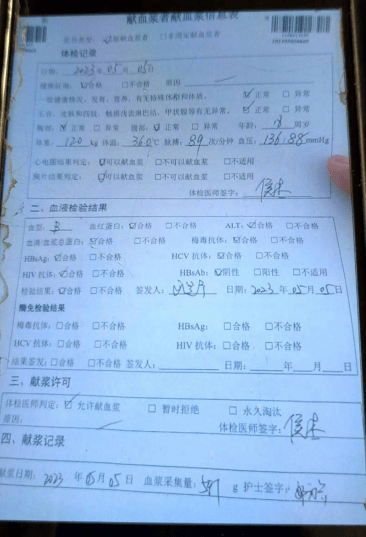 献血浆者献血浆信息表
体检记录
日期：2023年05月05日
□不合格 原因
一般健康情况，发育、营养，有无特殊体態和体质。 ☑正常 □异常
五官、皮肤和四肢、触摸浅表淋巴结、甲状腺等有无异常。 ☑正常 □异常
胸部：☑正常 □异常 腹部：☑正常 □异常 年龄：18 周岁
体重：120 kg 体温：36.0℃ 脉搏：89次/分钟 血压：136/88mmHg
心电图结果判定：☑可以献血浆 □不可以献血浆 □不适用
胸片结果判定：☑可以献血浆 □不可以献血浆 □不适用
体检医师签字：
二、血液检验结果
血型：B 血红蛋白：☑合格 □不合格 ALT：☑合格 □不合格
血清/血浆总蛋白：☑合格 □不合格 梅毒抗体：☑合格 □不合格
HBsAg：☑合格 □不合格 HCV抗体：☑合格 □不合格
HIV抗体：☑合格 □不合格 HBsAb：☑阴性 □阳性 □不适用
检验结果：☑合格 □不合格 签发人： 日期：2023年05月05日
酶免检验结果
梅毒抗体：□合格 □不合格 HBsAg：□合格 □不合格
HCV抗体：□合格 □不合格 HIV抗体：□合格 □不合格
结果签发：□合格 □不合格 签发人： 日期： 年 月 日
三、献浆许可
体检医师判定：☑允许献血浆 □暂时拒绝 □永久淘汰
原因： 体检医师签字：
四、献浆记录
献浆日期：2023年05月05日 血浆采集量： g 护士签字：